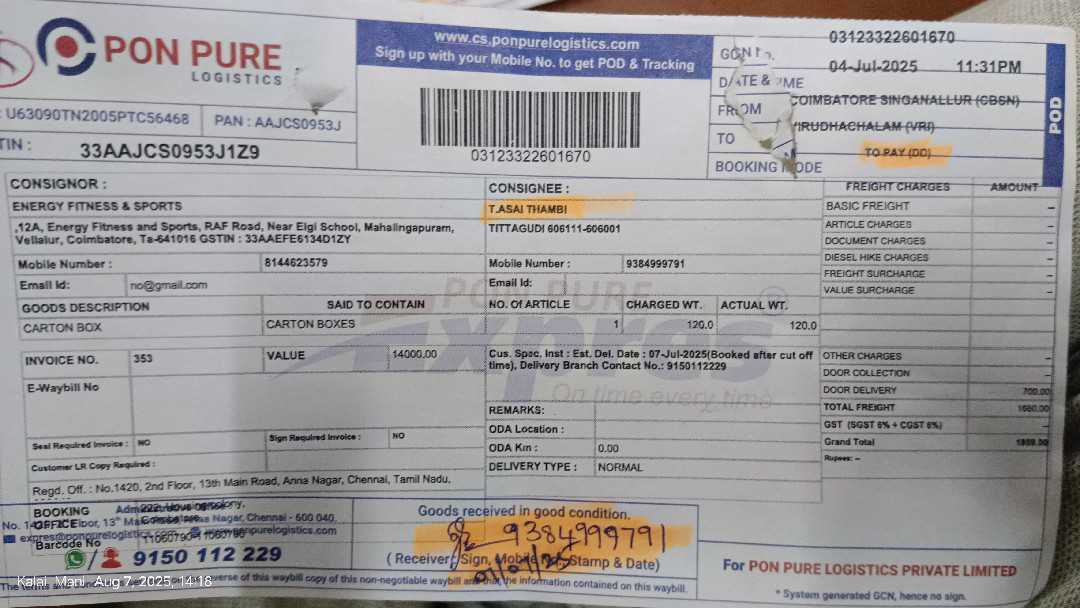 PON PURE
LOGISTICS
www.cs.ponpurelogistics.com
Sign up with your Mobile No. to get POD & Tracking
03123322601670
GCN
03123322601670
DATE & TIME
04-Jul-2025 11:31PM
FROM
COIMBATORE SINGANALLUR (CBSN)
TO
VIRUDHACHALAM (VRI)
BOOKING MODE
TO PAY (DD)
POD
: U63090TN2005PTC56468
PAN : AAJCS0953J
TIN :
33AAJCS0953J1Z9
CONSIGNOR :
ENERGY FITNESS & SPORTS
,12A, Energy Fitness and Sports, RAF Road, Near Elgi School, Mahalingapuram,
Vellalur, Coimbatore, Ta-641016 GSTIN : 33AAEFE6134D1ZY
Mobile Number : 8144623579
Email Id: no@gmail.com
GOODS DESCRIPTION
SAID TO CONTAIN
CARTON BOX
CARTON BOXES
INVOICE NO. 353
VALUE 14000.00
E-Waybill No
Seal Required Invoice : NO
Sign Required Invoice : NO
Customer LR Copy Required :
Regd. Off. : No.1420, 2nd Floor, 13th Main Road, Anna Nagar, Chennai, Tamil Nadu.
CONSIGNEE :
T.ASAI THAMBI
TITTAGUDI 606111-606001
Mobile Number : 9384999791
Email Id:
NO. Of ARTICLE CHARGED WT. ACTUAL WT.
1 120.0 120.0
Cus. Spec. Inst : Est. Del. Date : 07-Jul-2025(Booked after cut off
time), Delivery Branch Contact No.: 9150112229
REMARKS:
ODA Location :
ODA Km : 0.00
DELIVERY TYPE : NORMAL
PON PURE
Express
On time every time
FREIGHT CHARGES AMOUNT
BASIC FREIGHT –
ARTICLE CHARGES –
DOCUMENT CHARGES –
DIESEL HIKE CHARGES –
FREIGHT SURCHARGE –
VALUE SURCHARGE –
OTHER CHARGES –
DOOR COLLECTION –
DOOR DELIVERY 700.00
TOTAL FREIGHT
GST (SGST 6% + CGST 6%) –
Grand Total
Rupees: –
BOOKING
OFFICE
Barcode No
11060790-11060790
Anna Nagar, Chennai - 600 040.
9150 112 229
Goods received in good condition.
9384999791
( Receiver Sign, Mobile No. Stamp & Date)
For PON PURE LOGISTICS PRIVATE LIMITED
* System generated GCN, hence no sign.
reverse of this waybill copy of this non-negotiable waybill and that the information contained on this waybill.
Kalai. Mani Aug 7, 2025, 14:18